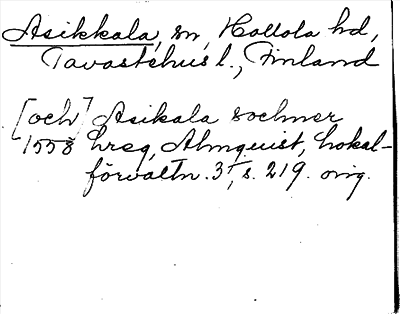 Asikkala, sn, Hollola hd,
Tavastehus l., Finland
[och] Asikala sochner
1558 hreg, Almquist, Lokal-
förvaltn. 3, s. 219. orig.